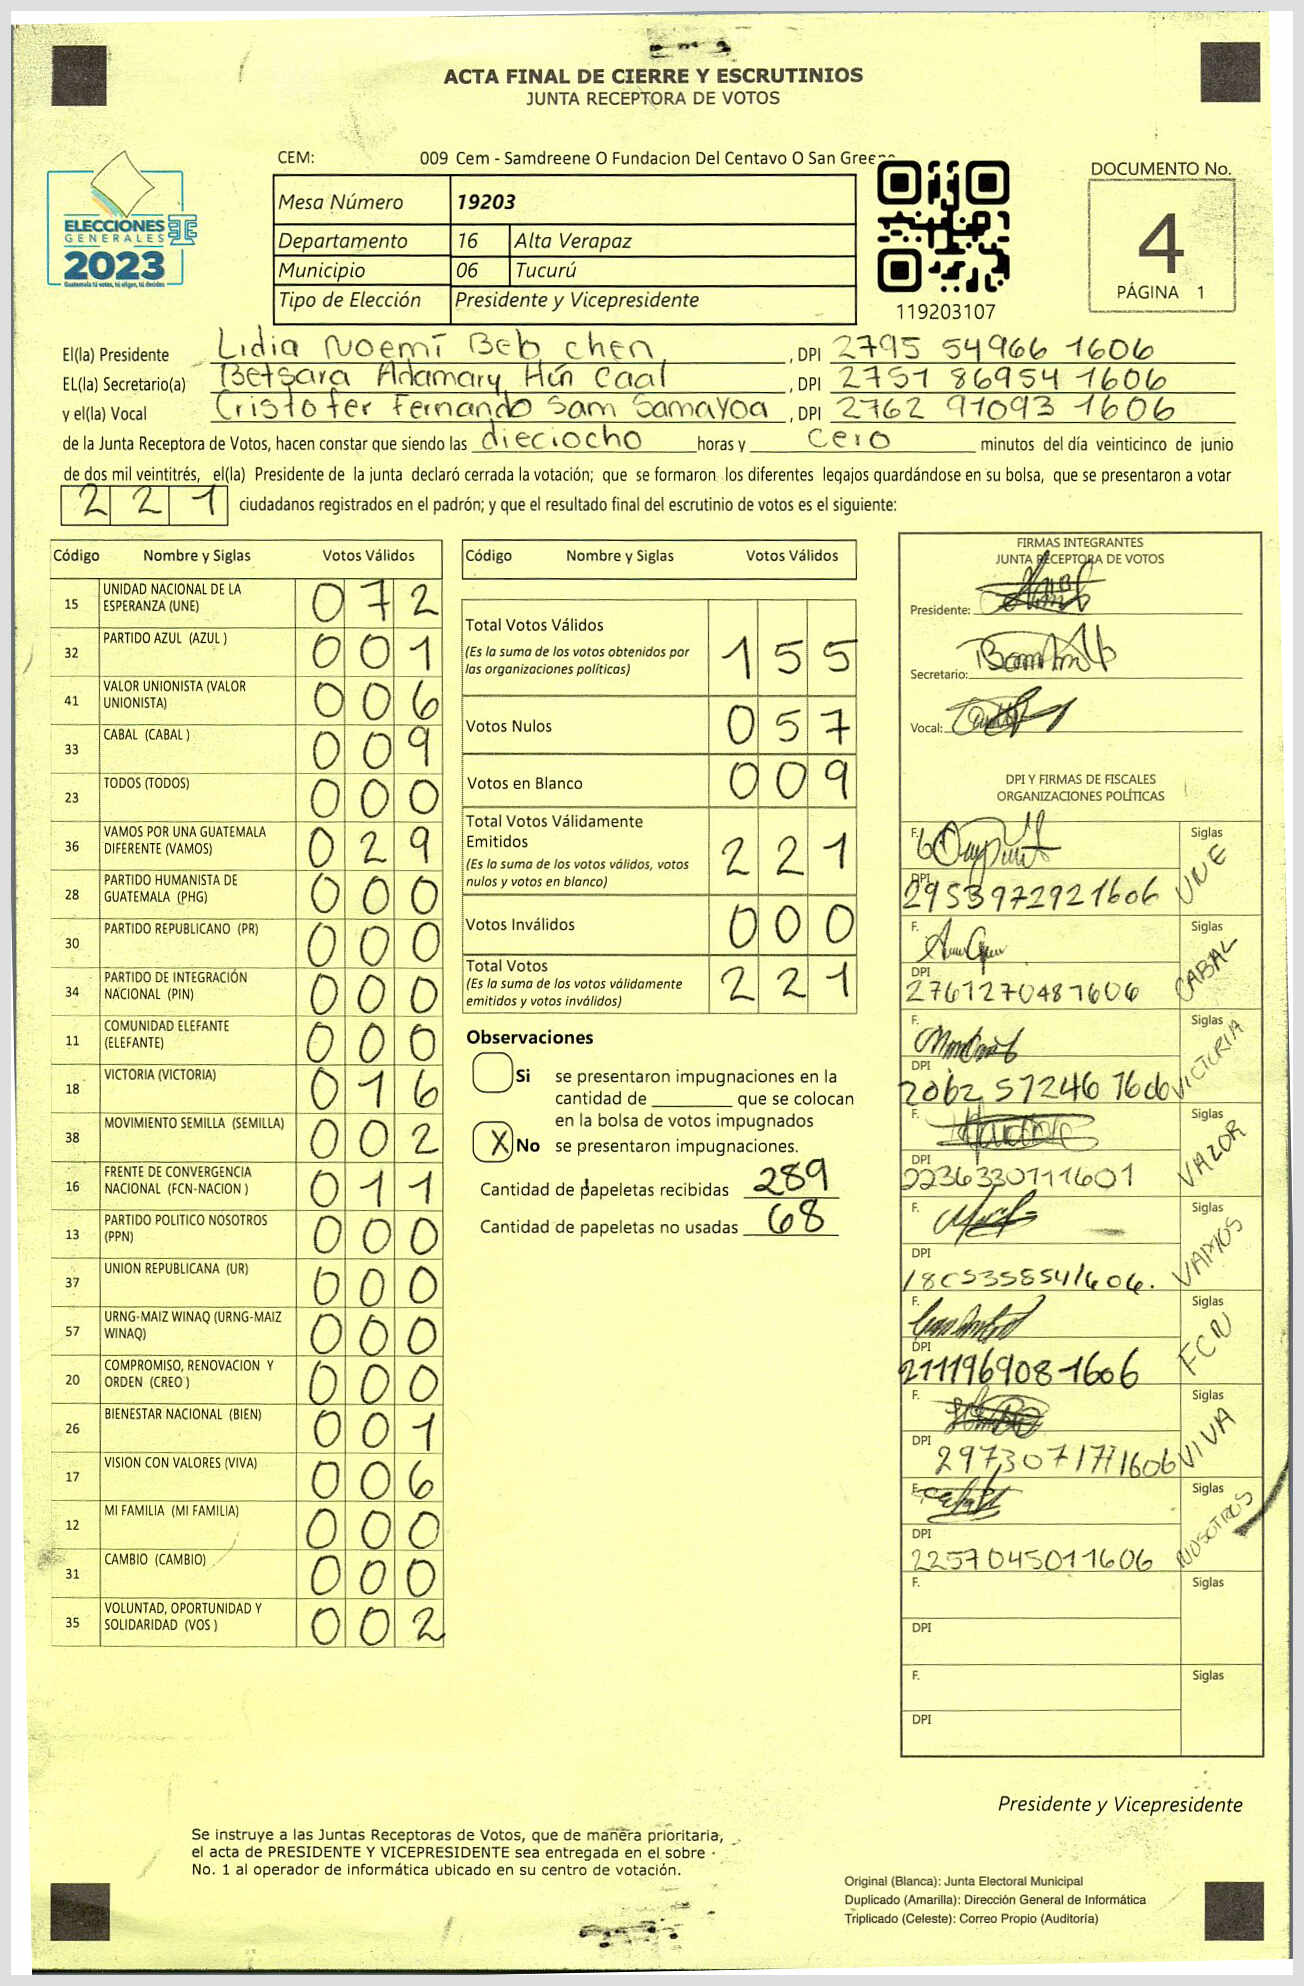 ACTA FINAL DE CIERRE Y ESCRUTINIOS
JUNTA RECEPTORA DE VOTOS
CEM: 009 Cem - Samdreene O Fundacion Del Centavo O San Greene
DOCUMENTO No.
4
PÁGINA 1
ELECCIONES
GENERALES
2023
Guatemala tú votas, tú eliges, tú decides
Mesa Número 19203
Departamento 16 Alta Verapaz
Municipio 06 Tucurú
Tipo de Elección Presidente y Vicepresidente
119203107
El(la) Presidente Lidia Noemí Beb chen, DPI 2795 54966 1606
EL(la) Secretario(a) Betsara Adamary Hún Caal, DPI 2751 86954 1606
y el(la) Vocal Cristofer Fernando Sam Samayoa, DPI 2762 91093 1606
de la Junta Receptora de Votos, hacen constar que siendo las dieciocho horas y cero minutos del día veinticinco de junio
de dos mil veintitrés, el(la) Presidente de la junta declaró cerrada la votación; que se formaron los diferentes legajos guardándose en su bolsa, que se presentaron a votar
221 ciudadanos registrados en el padrón; y que el resultado final del escrutinio de votos es el siguiente:
Código Nombre y Siglas Votos Válidos
15 UNIDAD NACIONAL DE LA ESPERANZA (UNE) 072
32 PARTIDO AZUL (AZUL ) 001
41 VALOR UNIONISTA (VALOR UNIONISTA) 006
33 CABAL (CABAL ) 009
23 TODOS (TODOS) 000
36 VAMOS POR UNA GUATEMALA DIFERENTE (VAMOS) 029
28 PARTIDO HUMANISTA DE GUATEMALA (PHG) 000
30 PARTIDO REPUBLICANO (PR) 000
34 PARTIDO DE INTEGRACIÓN NACIONAL (PIN) 000
11 COMUNIDAD ELEFANTE (ELEFANTE) 000
18 VICTORIA (VICTORIA) 016
38 MOVIMIENTO SEMILLA (SEMILLA) 002
16 FRENTE DE CONVERGENCIA NACIONAL (FCN-NACION ) 011
13 PARTIDO POLITICO NOSOTROS (PPN) 000
37 UNION REPUBLICANA (UR) 000
57 URNG-MAIZ WINAQ (URNG-MAIZ WINAQ) 000
20 COMPROMISO, RENOVACION Y ORDEN (CREO ) 000
26 BIENESTAR NACIONAL (BIEN) 001
17 VISION CON VALORES (VIVA) 006
12 MI FAMILIA (MI FAMILIA) 000
31 CAMBIO (CAMBIO) 000
35 VOLUNTAD, OPORTUNIDAD Y SOLIDARIDAD (VOS ) 002
Código Nombre y Siglas Votos Válidos
Total Votos Válidos 155
(Es la suma de los votos obtenidos por
las organizaciones políticas)
Votos Nulos 057
Votos en Blanco 009
Total Votos Válidamente
Emitidos 221
(Es la suma de los votos válidos, votos
nulos y votos en blanco)
Votos Inválidos 000
Total Votos 221
(Es la suma de los votos válidamente
emitidos y votos inválidos)
Observaciones
Si se presentaron impugnaciones en la
cantidad de ________ que se colocan
en la bolsa de votos impugnados
X No se presentaron impugnaciones.
Cantidad de papeletas recibidas 289
Cantidad de papeletas no usadas 68
FIRMAS INTEGRANTES
JUNTA RECEPTORA DE VOTOS
Presidente:
Secretario:
Vocal:
DPI Y FIRMAS DE FISCALES
ORGANIZACIONES POLÍTICAS
F. Siglas UNE
DPI 2953972921606
F. Siglas CABAL
DPI 2761270481606
F. Siglas VICTORIA
DPI 2062 57246 1606
F. Siglas VALOR
DPI 2236330111601
F. Siglas VAMOS
DPI
F. Siglas FCN
DPI 2111969081606
F. Siglas VIVA
DPI
F. Siglas NOSOTROS
DPI 2257045011606
F. Siglas
DPI
F. Siglas
DPI
Presidente y Vicepresidente
Se instruye a las Juntas Receptoras de Votos, que de manera prioritaria,
el acta de PRESIDENTE Y VICEPRESIDENTE sea entregada en el sobre
No. 1 al operador de informática ubicado en su centro de votación.
Original (Blanca): Junta Electoral Municipal
Duplicado (Amarilla): Dirección General de Informática
Triplicado (Celeste): Correo Propio (Auditoría)